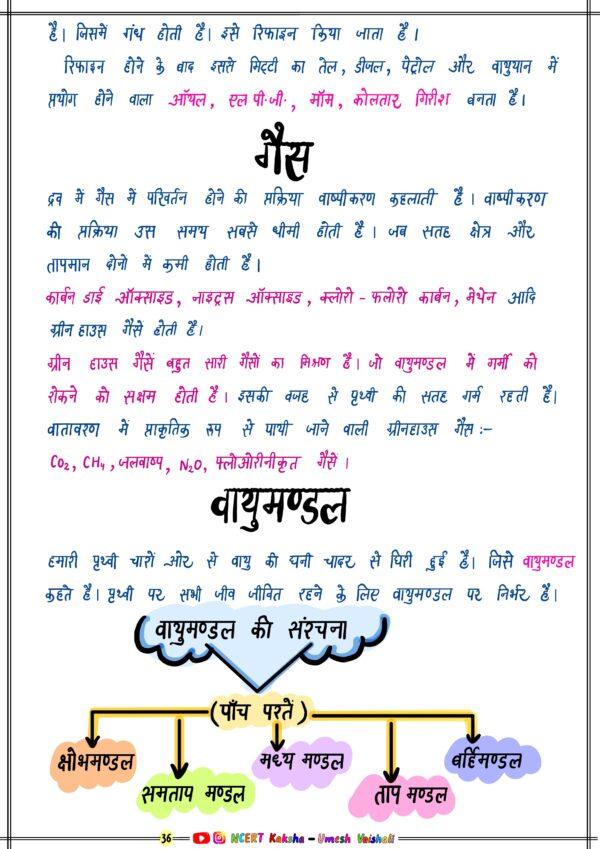 है। जिसमें गंध होती है। इसे रिफाइन किया जाता है।
रिफाइन होने के बाद इससे मिट्टी का तेल, डीजल, पेट्रोल और वायुयान में
प्रयोग होने वाला ऑयल, एल.पी.जी., मॉम, कोलतार, गिरीश बनता है।
गैस
द्रव में गैस में परिवर्तन होने की प्रक्रिया वाष्पीकरण कहलाती है। वाष्पीकरण
की प्रक्रिया उस समय सबसे धीमी होती है। जब सतह क्षेत्र और
तापमान दोनो में कमी होती है।
कार्बन डाई ऑक्साइड, नाइट्रस ऑक्साइड, क्लोरो-फलोरो कार्बन, मेथेन आदि
ग्रीन हाउस गैसें होती है।
ग्रीन हाउस गैसें बहुत सारी गैसों का मिश्रण है। जो वायुमण्डल में गर्मी को
रोकने को सक्षम होती है। इसकी वजह से पृथ्वी की सतह गर्म रहती है।
वातावरण में प्राकृतिक रूप से पायी जाने वाली ग्रीनहाउस गैस:-
CO₂, CH₄, जलवाष्प, N₂O, फ्लोओरीनीकृत गैसें।
वायुमण्डल
हमारी पृथ्वी चारों ओर से वायु की घनी चादर से घिरी हुई है। जिसे वायुमण्डल
कहते है। पृथ्वी पर सभी जीव जीवित रहने के लिए वायुमण्डल पर निर्भर है।
वायुमण्डल की संरचना
(पाँच परतें)
क्षोभमण्डल
समताप मण्डल
मध्य मण्डल
ताप मण्डल
बर्हिमण्डल
36 NCERT Kaksha - Umesh Vaishali